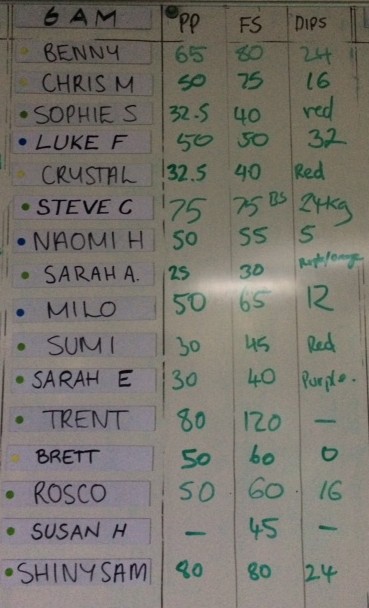 6 AM PP FS DIPS
BENNY 65 80 24
CHRIS M 50 75 16
SOPHIE S 32.5 40 red
LUKE F 50 50 32
CRYSTAL 32.5 40 Red
STEVE C 75 75 BS 24kg
NAOMI H 50 55 5
SARAH A. 25 30 Purple/orange
MILO 50 65 12
SUMI 30 45 Red
SARAH E 30 40 Purple.
TRENT 80 120 —
BRETT 50 60 0
ROSCO 50 60 16
SUSAN H — 45 —
SHINYSAM 80 80 24